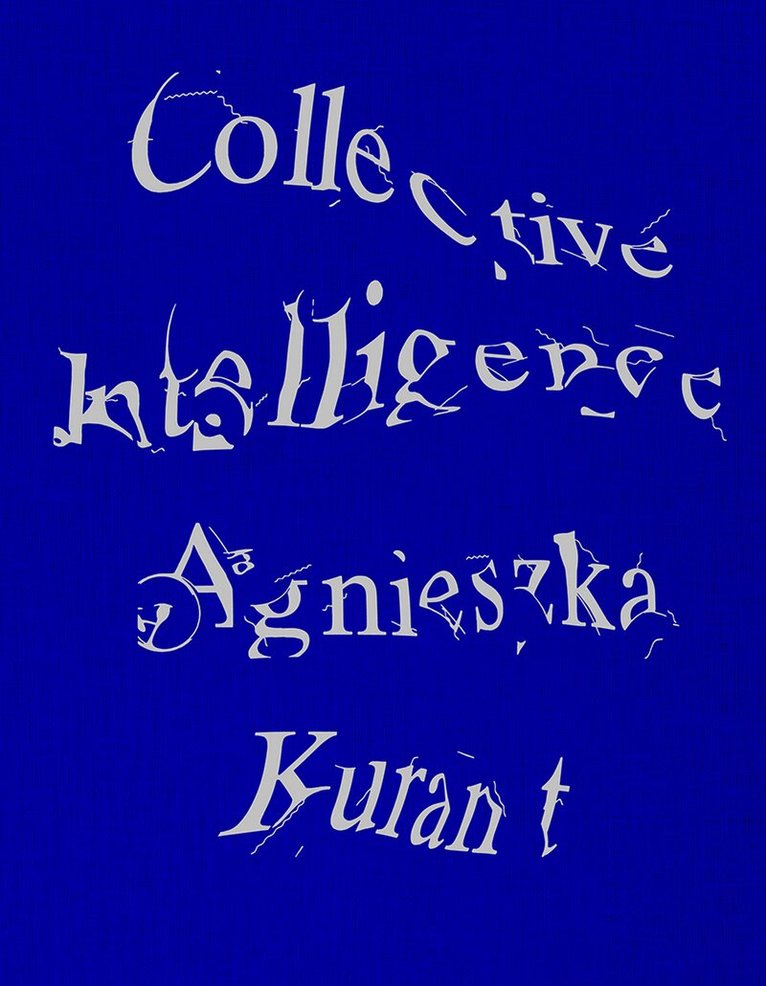 Collective
Intelligence
Agnieszka
Kurant